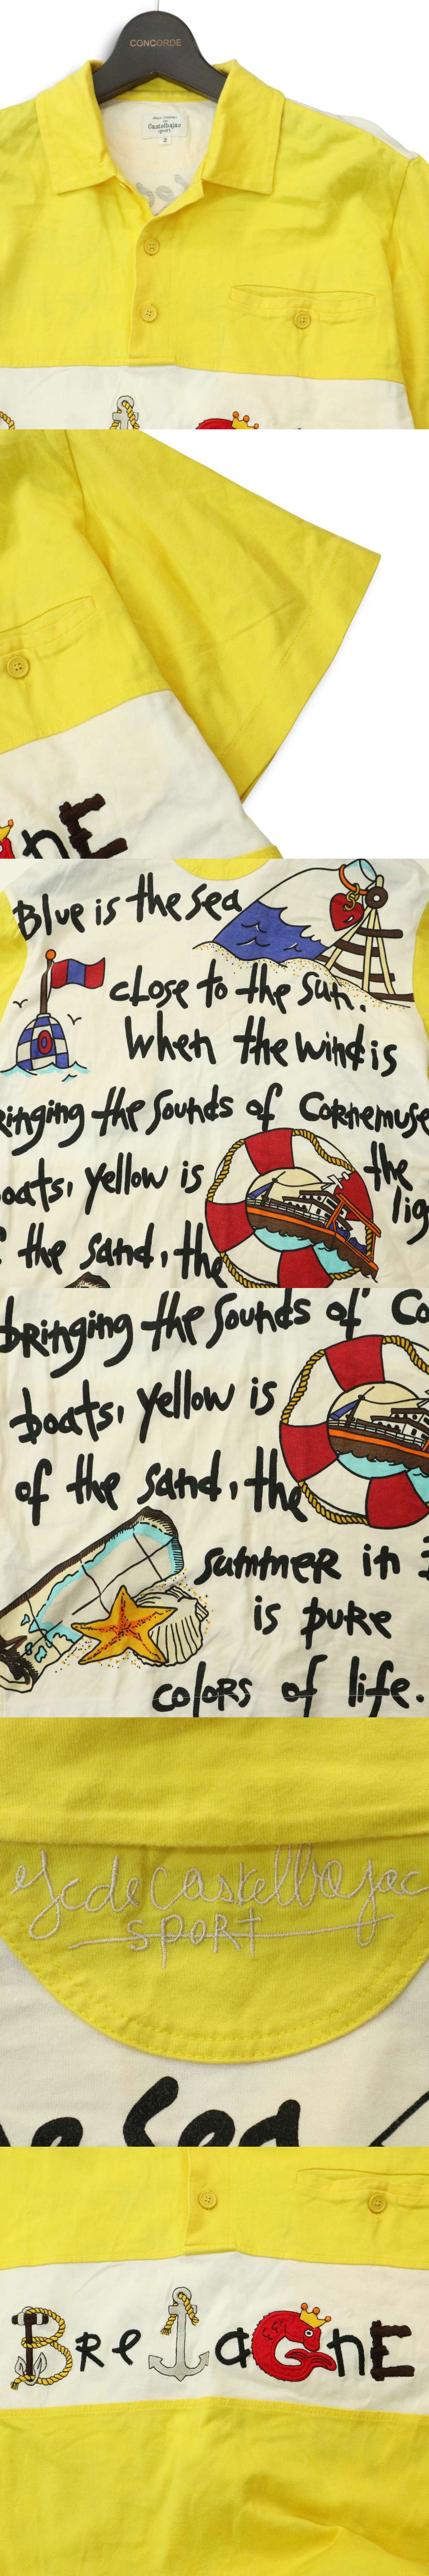 CONCORDE
Jean Charles
de
Castelbajac
sport
2
nE
Blue is the sea
close to the sun.
When the wind is
ringing the sounds of Cornemuse
boats, yellow is the
lig
the sand, the
bringing the sounds of Co
boats, yellow is
of the sand, the
summer in
is pure
colors of life.
Jc de Castelbajac
SPORT
he sea
BReTaGnE